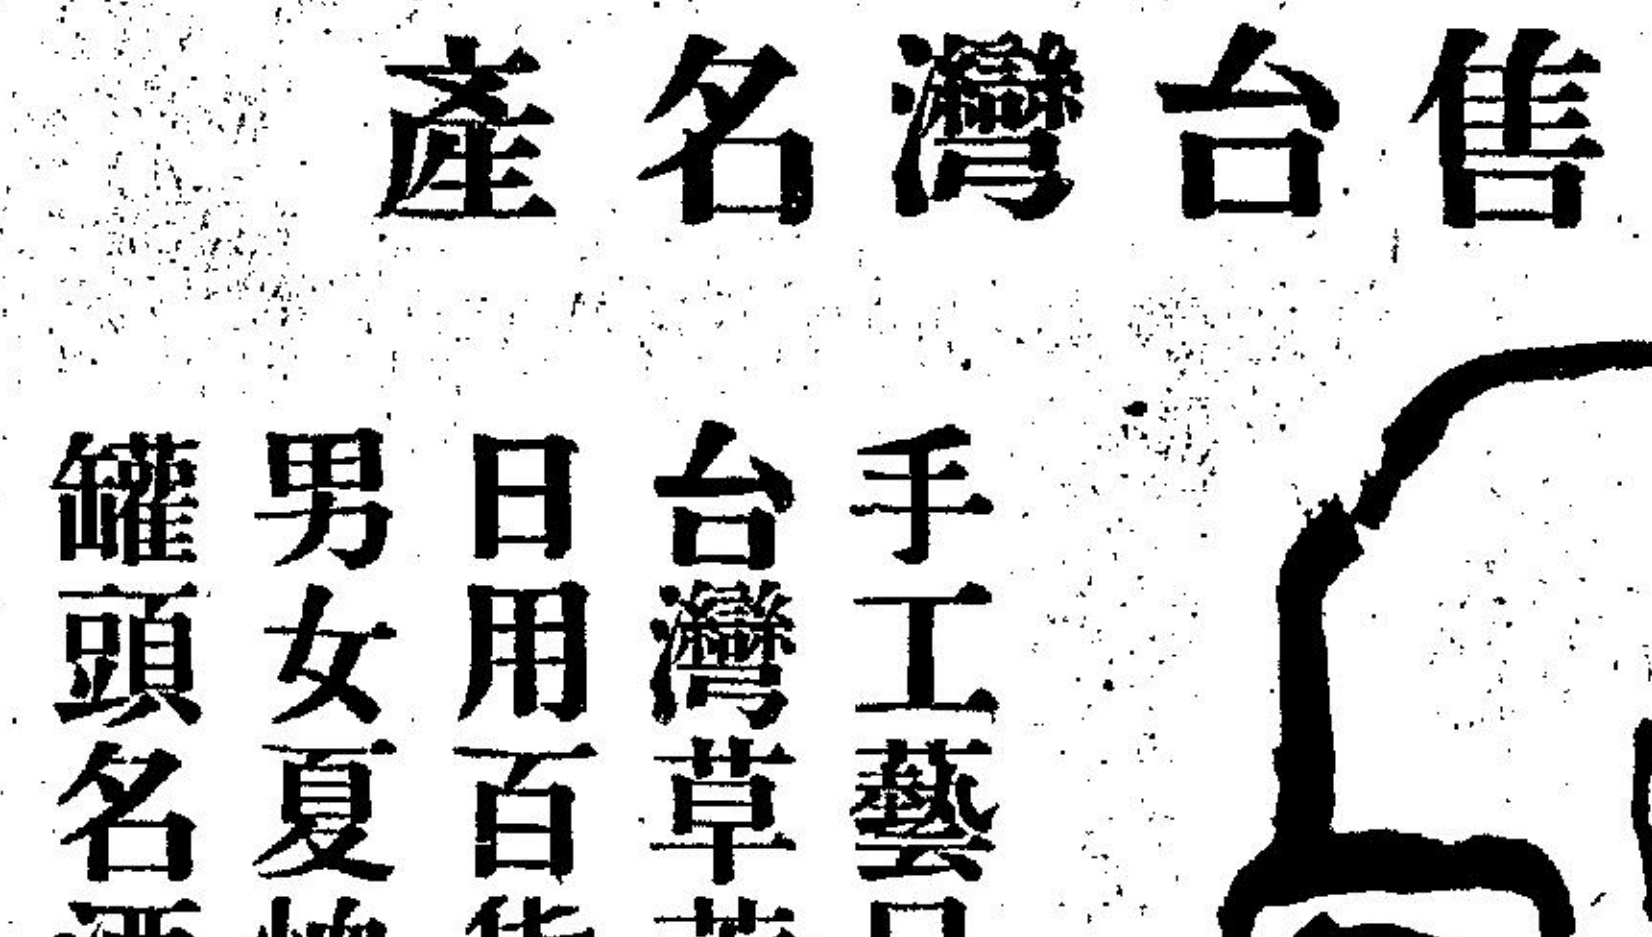 售台灣名產
手工藝品
台灣草
日用百貨
男女夏
罐頭名酒